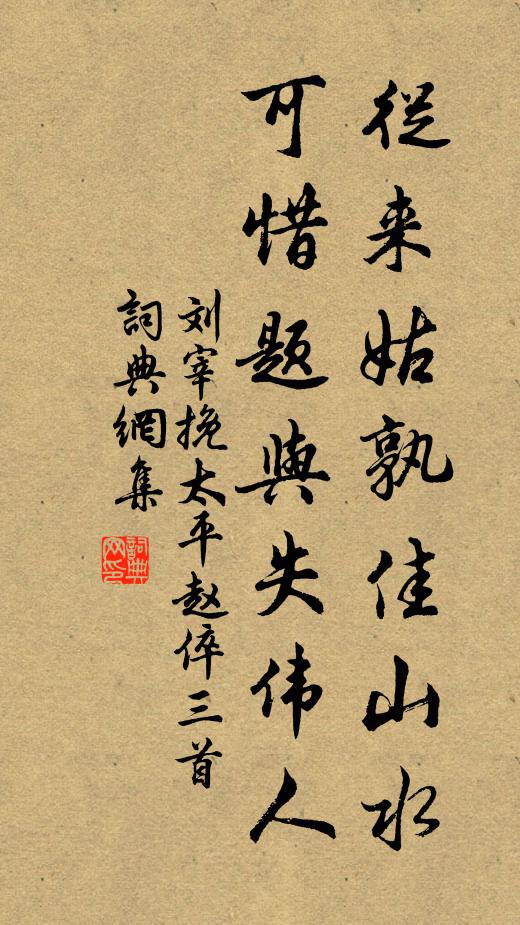 從来姑孰佳山水
可惜题與失伟人
刘宰挽太平赵倅三首
詞典網集
詞典网印